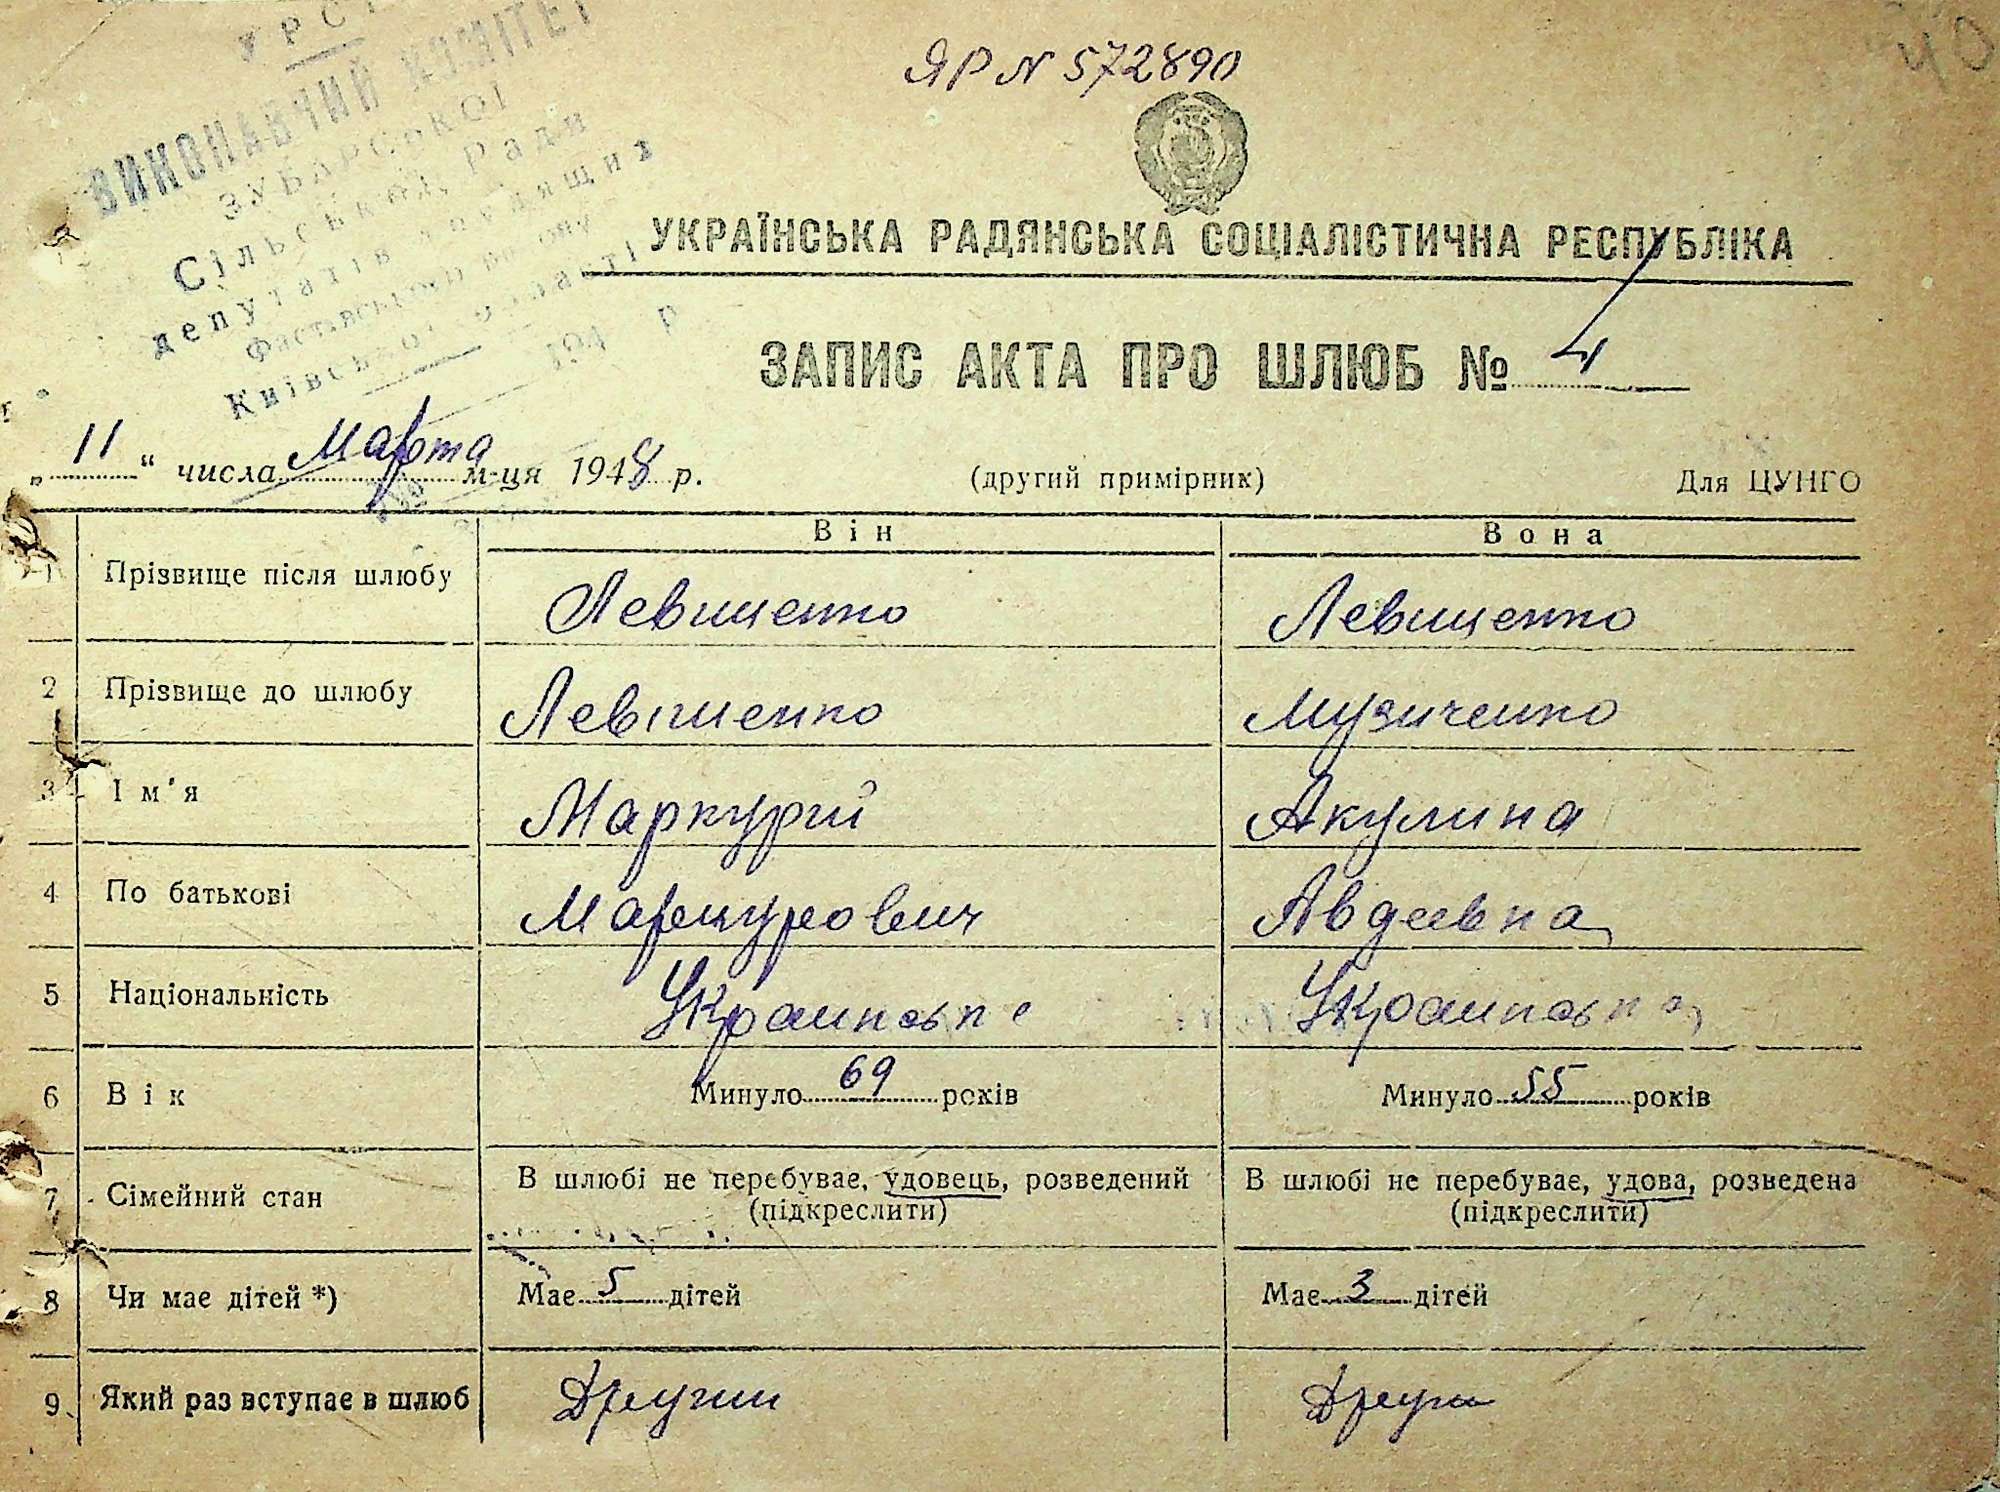 УРСР
ВИКОНАВЧИЙ КОМІТЕТ
ЗУБАРСЬКОЇ
Сільської Ради
депутатів трудящих
Фастівського району
Київської області
194 р
40
ЯР N 572890
УКРАЇНСЬКА РАДЯНСЬКА СОЦІАЛІСТИЧНА РЕСПУБЛІКА
ЗАПИС АКТА ПРО ШЛЮБ № 4
„11“ числа Марта м-ця 1948 р. (другий примірник) Для ЦУНГО
Він Вона
1 Прізвище після шлюбу Левищенко Левищенко
2 Прізвище до шлюбу Левіщенко Музиченко
3 Ім'я Маркурій Акулина
4 По батькові Маркурович Авдеевна
5 Національність Украинське Украинська
6 Вік Минуло 69 років Минуло 55 років
7 Сімейний стан В шлюбі не перебуває, удовець, розведений (підкреслити) В шлюбі не перебуває, удова, розведена (підкреслити)
8 Чи має дітей *) Має 5 дітей Має 3 дітей
9 Який раз вступає в шлюб Другий Други